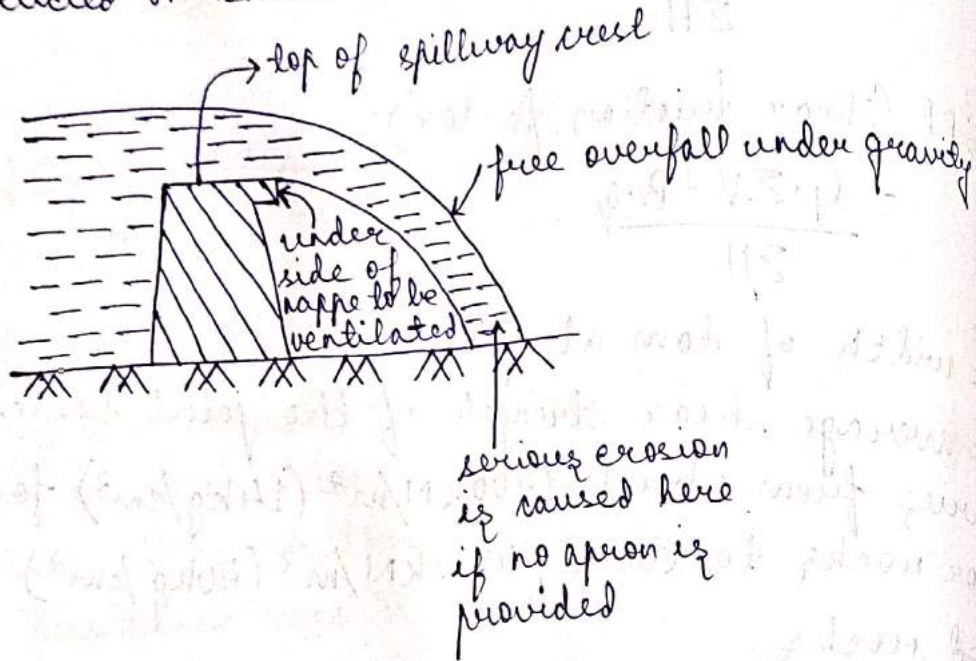 top of spillway crest
free overfall under gravity
under
side of
nappe to be
ventilated
serious erosion
is caused here
if no apron is
provided